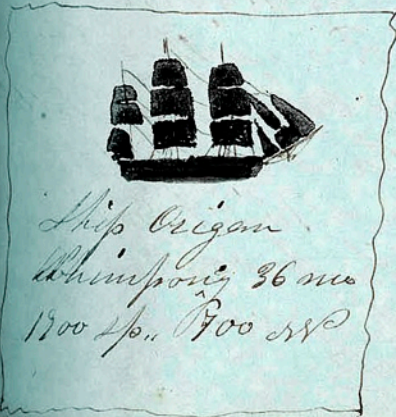 Ship Origan
Whimpony 36 mo
1900 sp,, 700